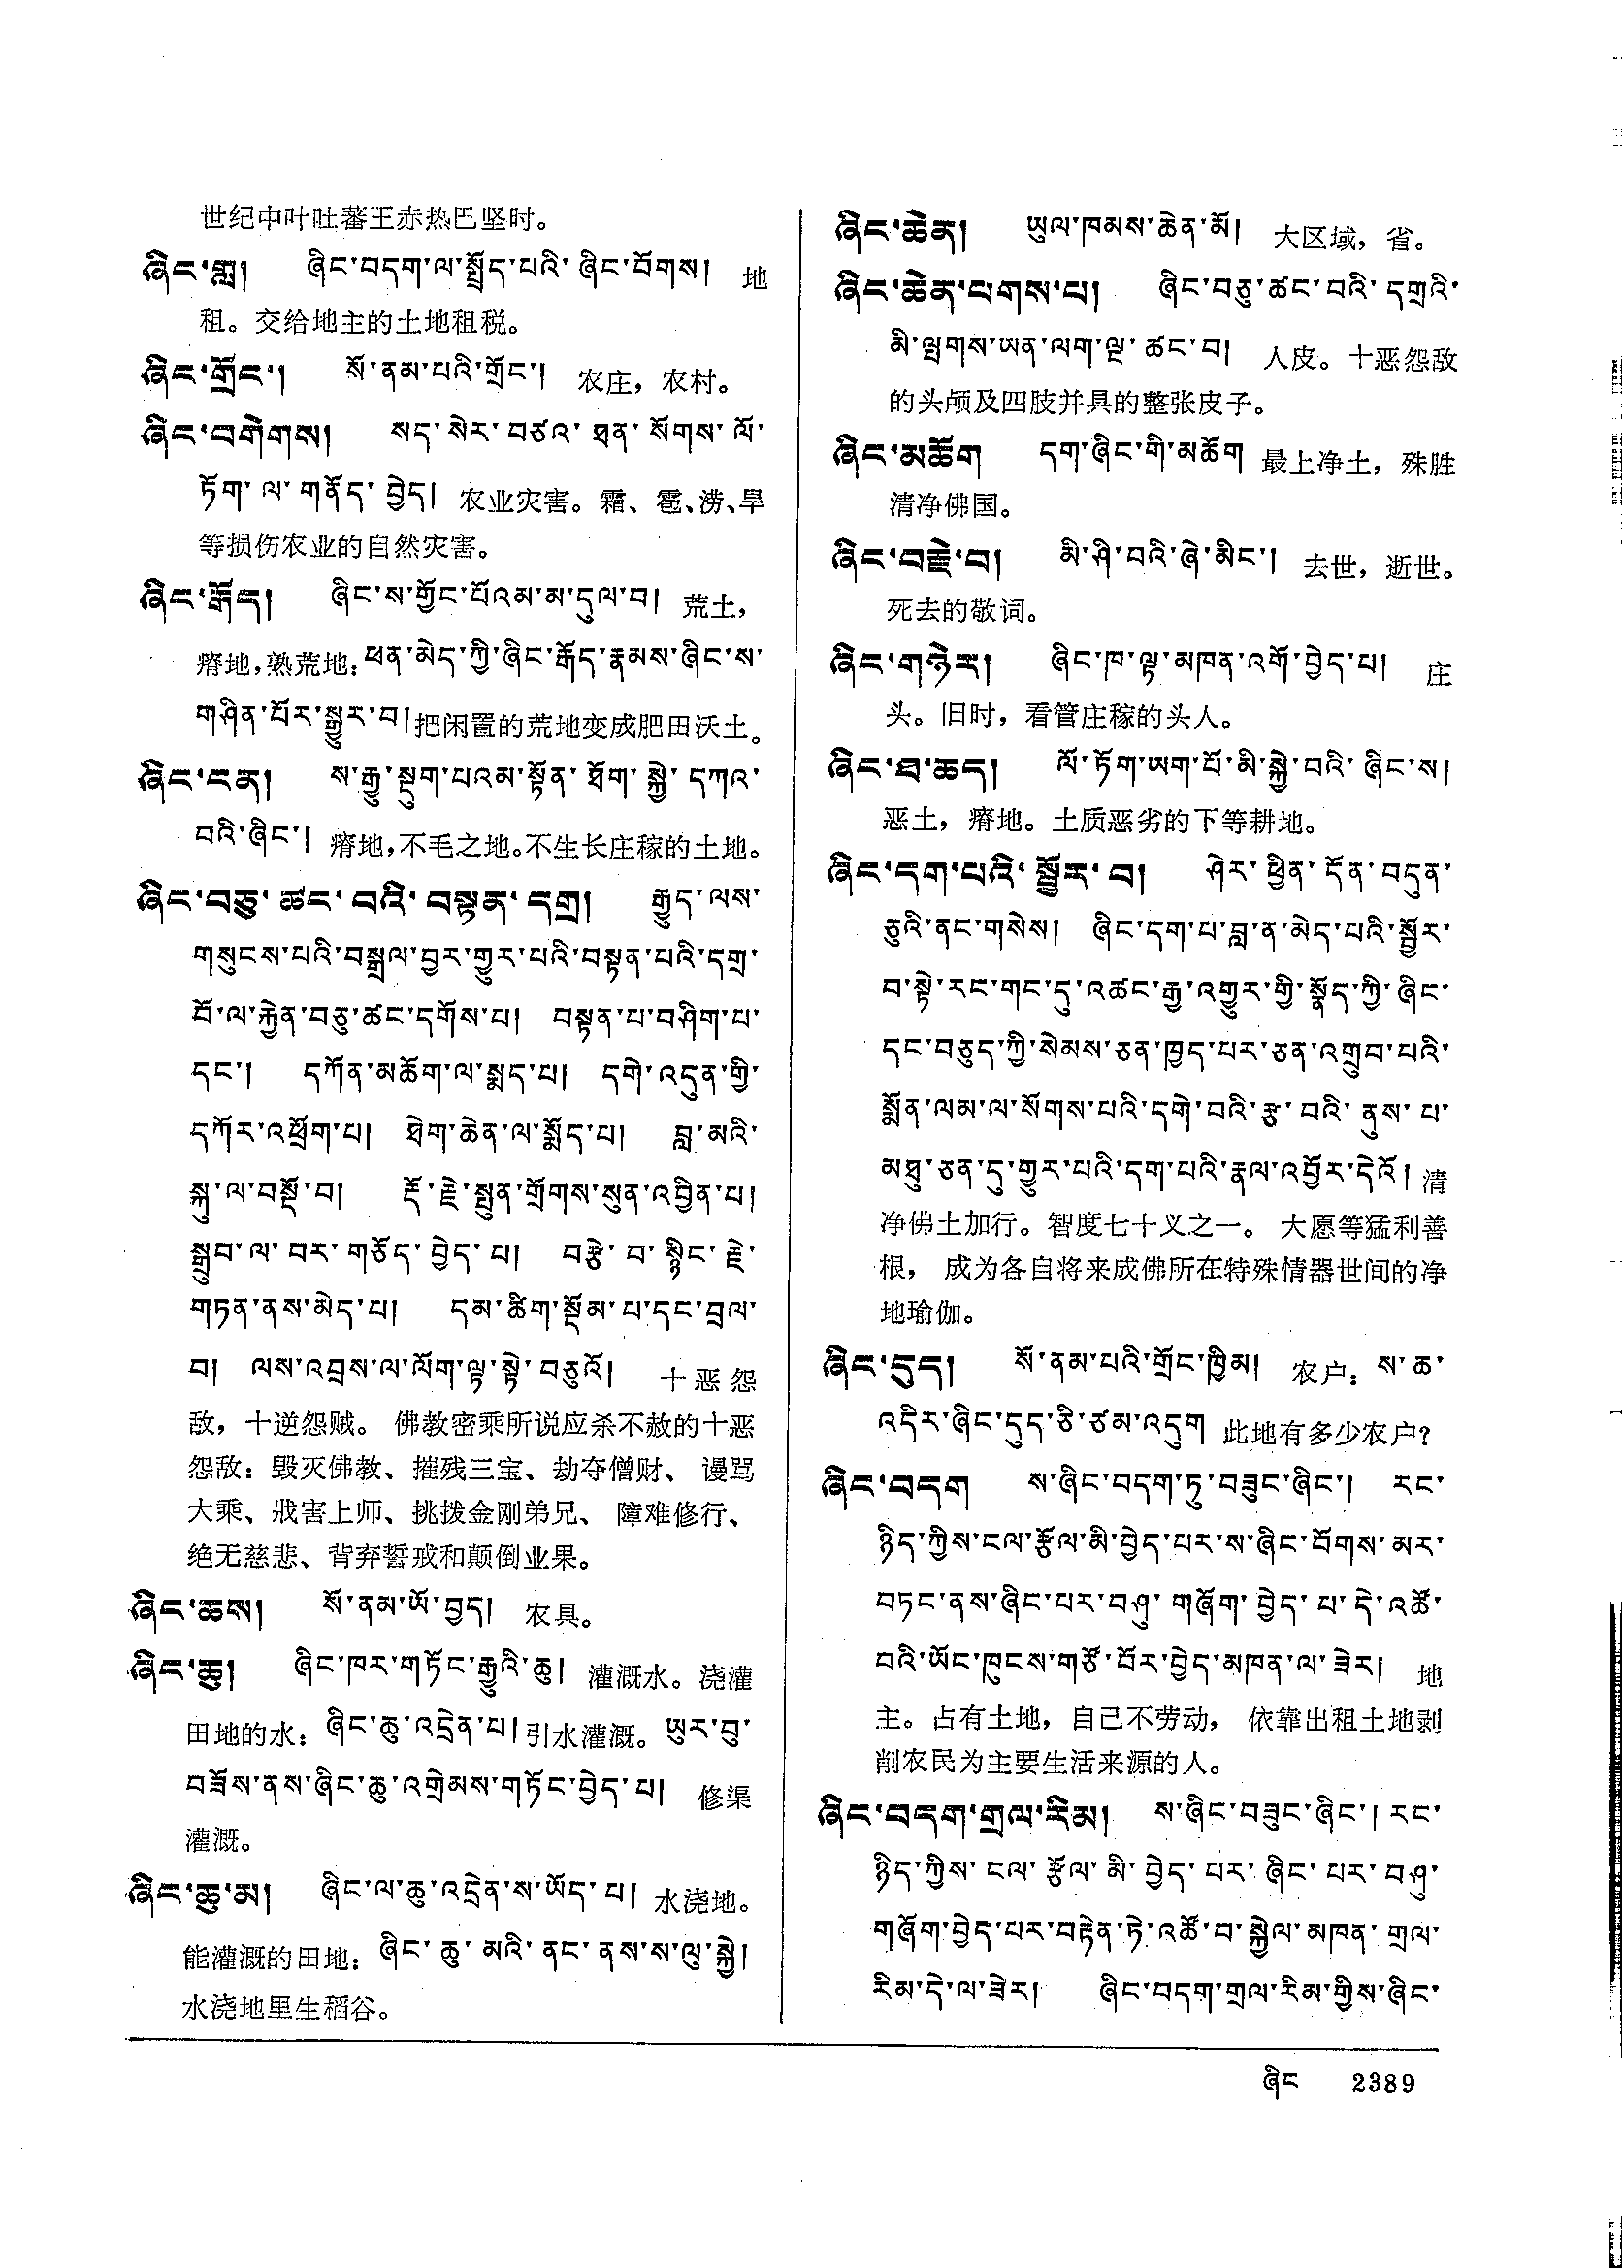 世纪中叶吐蕃王赤热巴坚时。
ཞིང་གླ། ཞིང་བདག་ལ་སྤྲོད་པའི་ ཞིང་བོགས། 地
租。交给地主的土地租税。
ཞིང་གྲོང་། སོ་ནམ་པའི་གྲོང་། 农庄，农村。
ཞིང་བགེགས། སད་ སེར་ བཙའ་ ཐན་ སོགས་ ལོ་
ཏོག་ ལ་ གནོད་ བྱེད། 农业灾害。霜、雹、涝、旱
等损伤农业的自然灾害。
ཞིང་རྒོད། ཞིང་ས་གྱོང་པོའམ་མ་དུལ་བ། 荒土，
瘠地，熟荒地：ཕན་མེད་ཀྱི་ཞིང་རྒོད་རྣམས་ཞིང་ས་
གཤིན་པོར་སྒྱུར་བ། 把闲置的荒地变成肥田沃土。
ཞིང་ངན། ས་རྒྱུ་སྡུག་པའམ་སྟོན་ ཐོག་ སྐྱེ་ དཀའ་
བའི་ཞིང་། 瘠地，不毛之地。不生长庄稼的土地。
ཞིང་བཅུ་ ཚང་ བའི་ བསྟན་ དགྲ། རྒྱུད་ ལས་
གསུངས་པའི་བསྒྲལ་བྱར་གྱུར་པའི་བསྟན་པའི་དགྲ་
བོ་ལ་རྐྱེན་བཅུ་ཚང་དགོས་པ། བསྟན་པ་བཤིག་པ་
དང་། དཀོན་མཆོག་ལ་སྨད་པ། དགེ་འདུན་གྱི་
དཀོར་འཕྲོག་པ། ཐེག་ཆེན་ལ་སྨོད་པ། བླ་མའི་
སྐུ་ལ་བསྡོ་བ། རྡོ་རྗེ་སྤུན་གྲོགས་སུན་འབྱིན་པ།
སྒྲུབ་ ལ་ བར་ གཅོད་ བྱེད་ པ། བརྩེ་ བ་ སྙིང་ རྗེ་
གཏན་ནས་མེད་པ། དམ་ཚིག་སྡོམ་པ་དང་བྲལ་
བ། ལས་འབྲས་ལ་ལོག་ལྟ་སྟེ་བཅུའོ། 十恶怨
敌，十逆怨贼。佛教密乘所说应杀不赦的十恶
怨敌：毁灭佛教、摧残三宝、劫夺僧财、谩骂
大乘、戕害上师、挑拨金刚弟兄、障难修行、
绝无慈悲、背弃誓戒和颠倒业果。
ཞིང་ཆས། སོ་ནམ་ཡོ་བྱད། 农具。
ཞིང་ཆུ། ཞིང་ཁར་གཏོང་རྒྱུའི་ཆུ། 灌溉水。浇灌
田地的水：ཞིང་ཆུ་འདྲེན་པ། 引水灌溉。ཡུར་བུ་
བཟོས་ནས་ཞིང་ཆུ་འགྲེམས་གཏོང་བྱེད་པ། 修渠
灌溉。
ཞིང་ཆུ་མ། ཞིང་ལ་ཆུ་འདྲེན་ས་ཡོད་པ། 水浇地。
能灌溉的田地：ཞིང་ ཆུ་ མའི་ ནང་ ནས་ས་ལུ་སྐྱེ།
水浇地里生稻谷。
ཞིང་ཆེན། ཡུལ་ཁམས་ཆེན་མོ། 大区域，省。
ཞིང་ཆེན་པགས་པ། ཞིང་བཅུ་ཚང་བའི་ དགྲའི་
མི་ལྤགས་ཡན་ལག་ལྔ་ ཚང་བ། 人皮。十恶怨敌
的头颅及四肢并具的整张皮子。
ཞིང་མཆོག དག་ཞིང་གི་མཆོག 最上净土，殊胜
清净佛国。
ཞིང་བརྗེ་བ། མི་ཤི་བའི་ཞེ་མིང་། 去世，逝世。
死去的敬词。
ཞིང་གཉེར། ཞིང་ཁ་ལྟ་མཁན་འགོ་བྱེད་པ། 庄
头。旧时，看管庄稼的头人。
ཞིང་ཐ་ཆད། ལོ་ཏོག་ཡག་པོ་མི་སྐྱེ་བའི་ ཞིང་ས།
恶土，瘠地。土质恶劣的下等耕地。
ཞིང་དག་པའི་ སྦྱོར་ བ། ཤེར་ ཕྱིན་ དོན་ བདུན་
ཅུའི་ནང་གསེས། ཞིང་དག་པ་བླ་ན་མེད་པའི་སྦྱོར་
བ་སྟེ་རང་གང་དུ་འཚང་རྒྱ་འགྱུར་གྱི་སྣོད་ཀྱི་ཞིང་
དང་བཅུད་ཀྱི་སེམས་ཅན་ཁྱད་པར་ཅན་འགྲུབ་པའི་
སྨོན་ལམ་ལ་སོགས་པའི་དགེ་བའི་རྩ་ བའི་ ནུས་ པ་
མཐུ་ཅན་དུ་གྱུར་པའི་དག་པའི་རྣལ་འབྱོར་དེའོ། 清
净佛土加行。智度七十义之一。大愿等猛利善
根，成为各自将来成佛所在特殊情器世间的净
地瑜伽。
ཞིང་དུད། སོ་ནམ་པའི་གྲོང་ཁྱིམ། 农户：ས་ཆ་
འདིར་ཞིང་དུད་ཅི་ཙམ་འདུག 此地有多少农户？
ཞིང་བདག ས་ཞིང་བདག་ཏུ་བཟུང་ཞིང་། རང་
ཉིད་ཀྱིས་ངལ་རྩོལ་མི་བྱེད་པར་ས་ཞིང་བོགས་མར་
བཏང་ནས་ཞིང་པར་བཤུ་ གཞོག་ བྱེད་ པ་ དེ་འཚོ་
བའི་ཡོང་ཁུངས་གཙོ་བོར་བྱེད་མཁན་ལ་ཟེར། 地
主。占有土地，自己不劳动，依靠出租土地剥
削农民为主要生活来源的人。
ཞིང་བདག་གྲལ་རིམ། ས་ཞིང་བཟུང་ཞིང་། རང་
ཉིད་ཀྱིས་ ངལ་ རྩོལ་ མི་ བྱེད་ པར་ ཞིང་ པར་ བཤུ་
གཞོག་བྱེད་པར་བརྟེན་ཏེ་འཚོ་བ་སྐྱེལ་མཁན་ གྲལ་
རིམ་དེ་ལ་ཟེར། ཞིང་བདག་གྲལ་རིམ་གྱིས་ཞིང་
ཞིང 2389